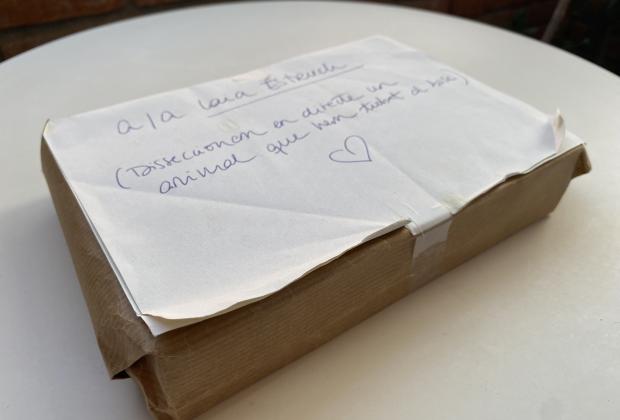 a/a Laia Estruch
(Disseccionen en directe un
animal que hem trobat al bosc)